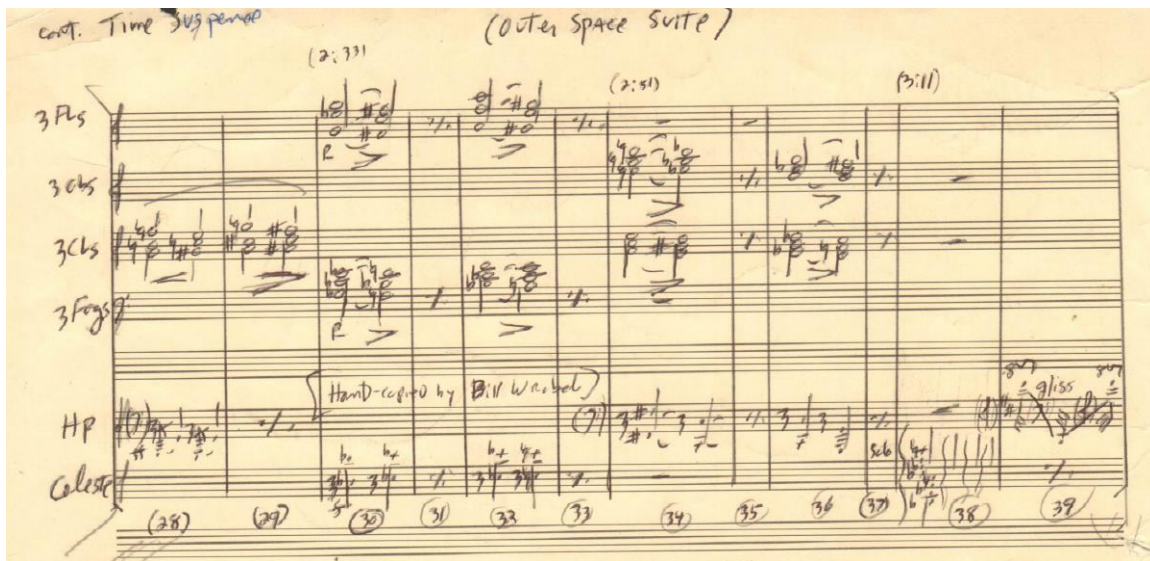 cont. Time Suspense (Outer Space Suite)
(2:33) (2:51) (3:11)
3 Fls
3 obs
3 Cls
P
3 Fags
P
[Hand-copied by Bill Wrobel]
Hp gliss
Celeste
(28) (29) (30) (31) (32) (33) (34) (35) (36) (37) (38) (39)